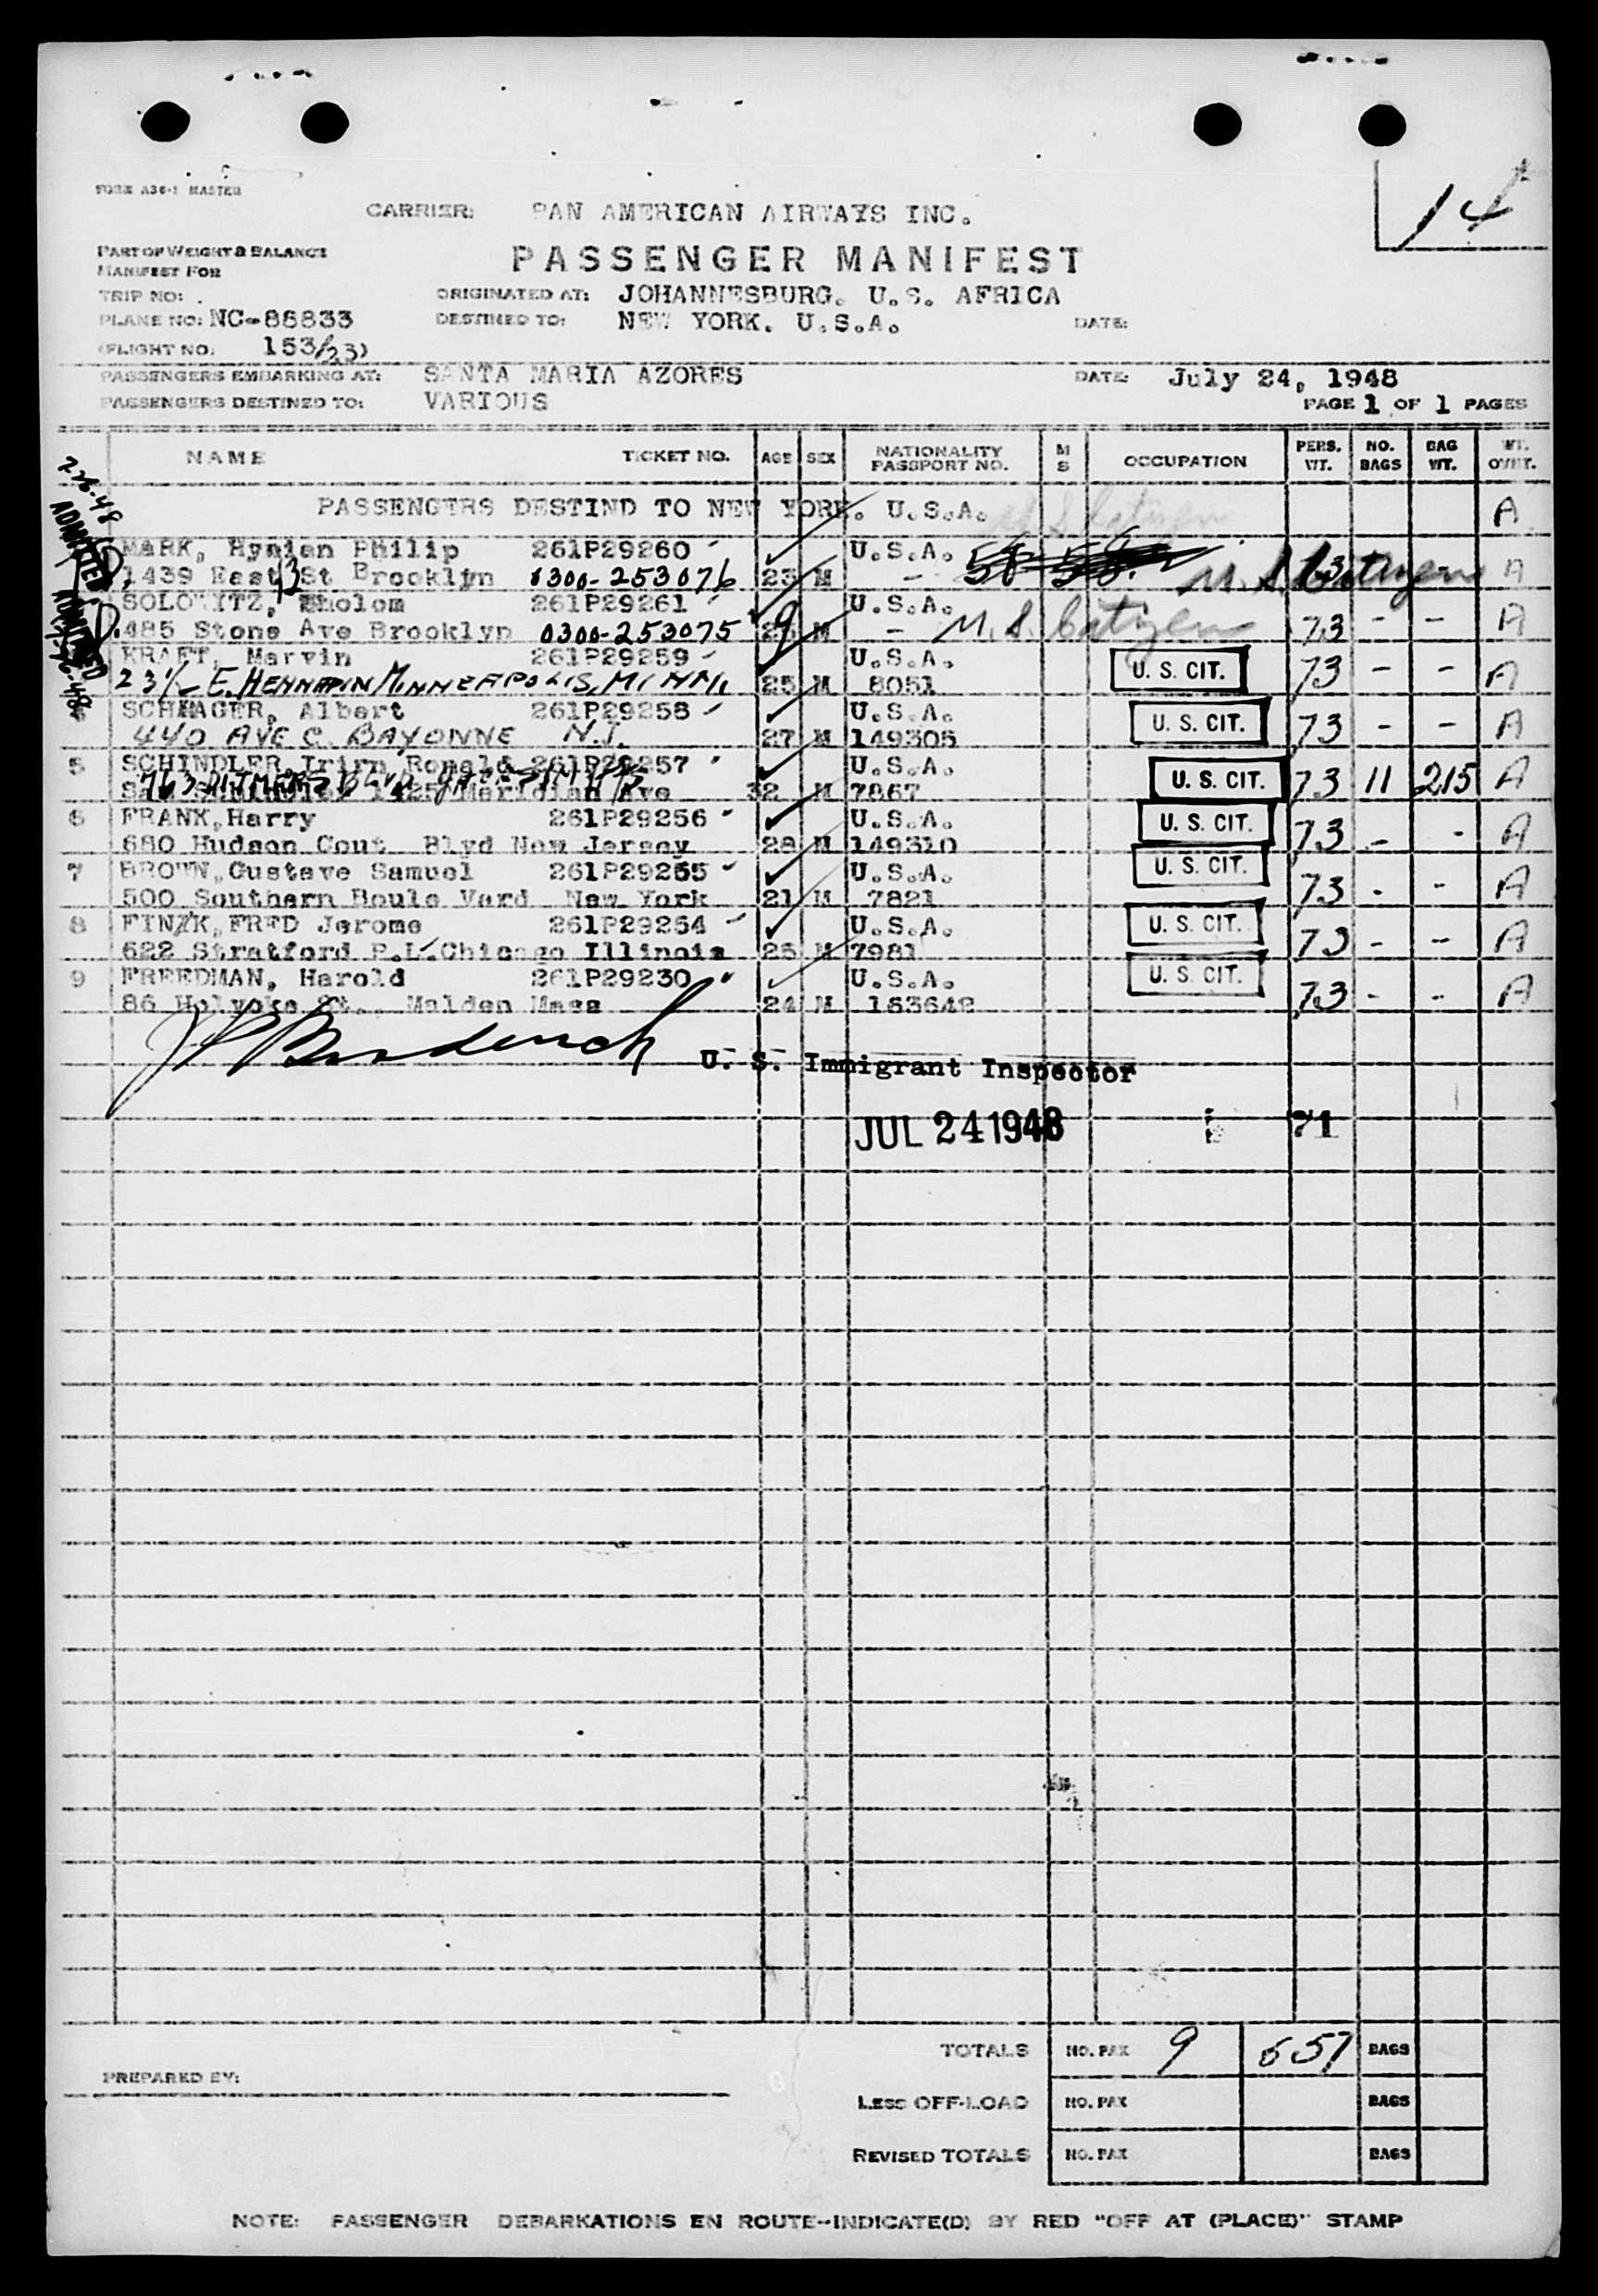 FORM A36-1 MASTER
14
CARRIER: PAN AMERICAN AIRWAYS INC.
PART OF WEIGHT & BALANCE
MANIFEST FOR
PASSENGER MANIFEST
TRIP NO:
ORIGINATED AT: JOHANNESBURG. U.S. AFRICA
PLANE NO: NC-88833
DESTINED TO: NEW YORK. U.S.A.
DATE:
(FLIGHT NO. 153/23)
PASSENGERS EMBARKING AT: SANTA MARIA AZORES
DATE: July 24, 1948
PASSENGERS DESTINED TO: VARIOUS
PAGE 1 OF 1 PAGES
NAME TICKET NO. AGE SEX NATIONALITY PASSPORT NO. M S OCCUPATION PERS. WT. NO. BAGS BAG WT. WT. OVHT.
PASSENGTRS DESTIND TO NEW YORK. U.S.A. A
MARK, Hymian Philip 261P29260 U.S.A.
1439 East 13 St Brooklyn 0300-253076 23 M - U.S. Citizen A
SOLOWITZ, Sholom 261P29261 U.S.A.
485 Stone Ave Brooklyn 0300-253075 M - U.S. Citizen 73 - - A
KRAFT, Marvin 261P29259 U.S.A. U. S. CIT.
E. HENNAPIN MINNEAPOLIS, MINN. 25 M 8051 73 - - A
SCHWAGER, Albert 261P29258 U.S.A. U. S. CIT.
440 AVE C. BAYONNE N.J. 27 M 149305 73 - - A
5 SCHINDLER, Ronald 261P29257 U.S.A. U. S. CIT.
Meridian Ave 32 M 7867 73 11 215 A
6 FRANK, Harry 261P29256 U.S.A. U. S. CIT.
680 Hudson Cout Blvd New Jersey 28 M 149310 73 - - A
7 BROWN, Gustave Samuel 261P29255 U.S.A. U. S. CIT.
500 Southern Boule Vard New York 21 M 7821 73 - - A
8 FINK, FRED Jerome 261P29254 U.S.A. U. S. CIT.
622 Stratford P.L. Chicago Illinois 25 M 7981 73 - - A
9 FREEDMAN, Harold 261P29230 U.S.A. U. S. CIT.
86 Holyoke St., Malden Mass 24 M 153642 73 - - A
U. S. Immigrant Inspector
JUL 24 1948
71
ADMITTED
ADMITTED
TOTALS NO. PAX 9 657 BAGS
PREPARED BY:
LESS OFF-LOAD NO. PAX BAGS
REVISED TOTALS NO. PAX BAGS
NOTE: PASSENGER DEBARKATIONS EN ROUTE-INDICATE(D) BY RED "OFF AT (PLACE)" STAMP